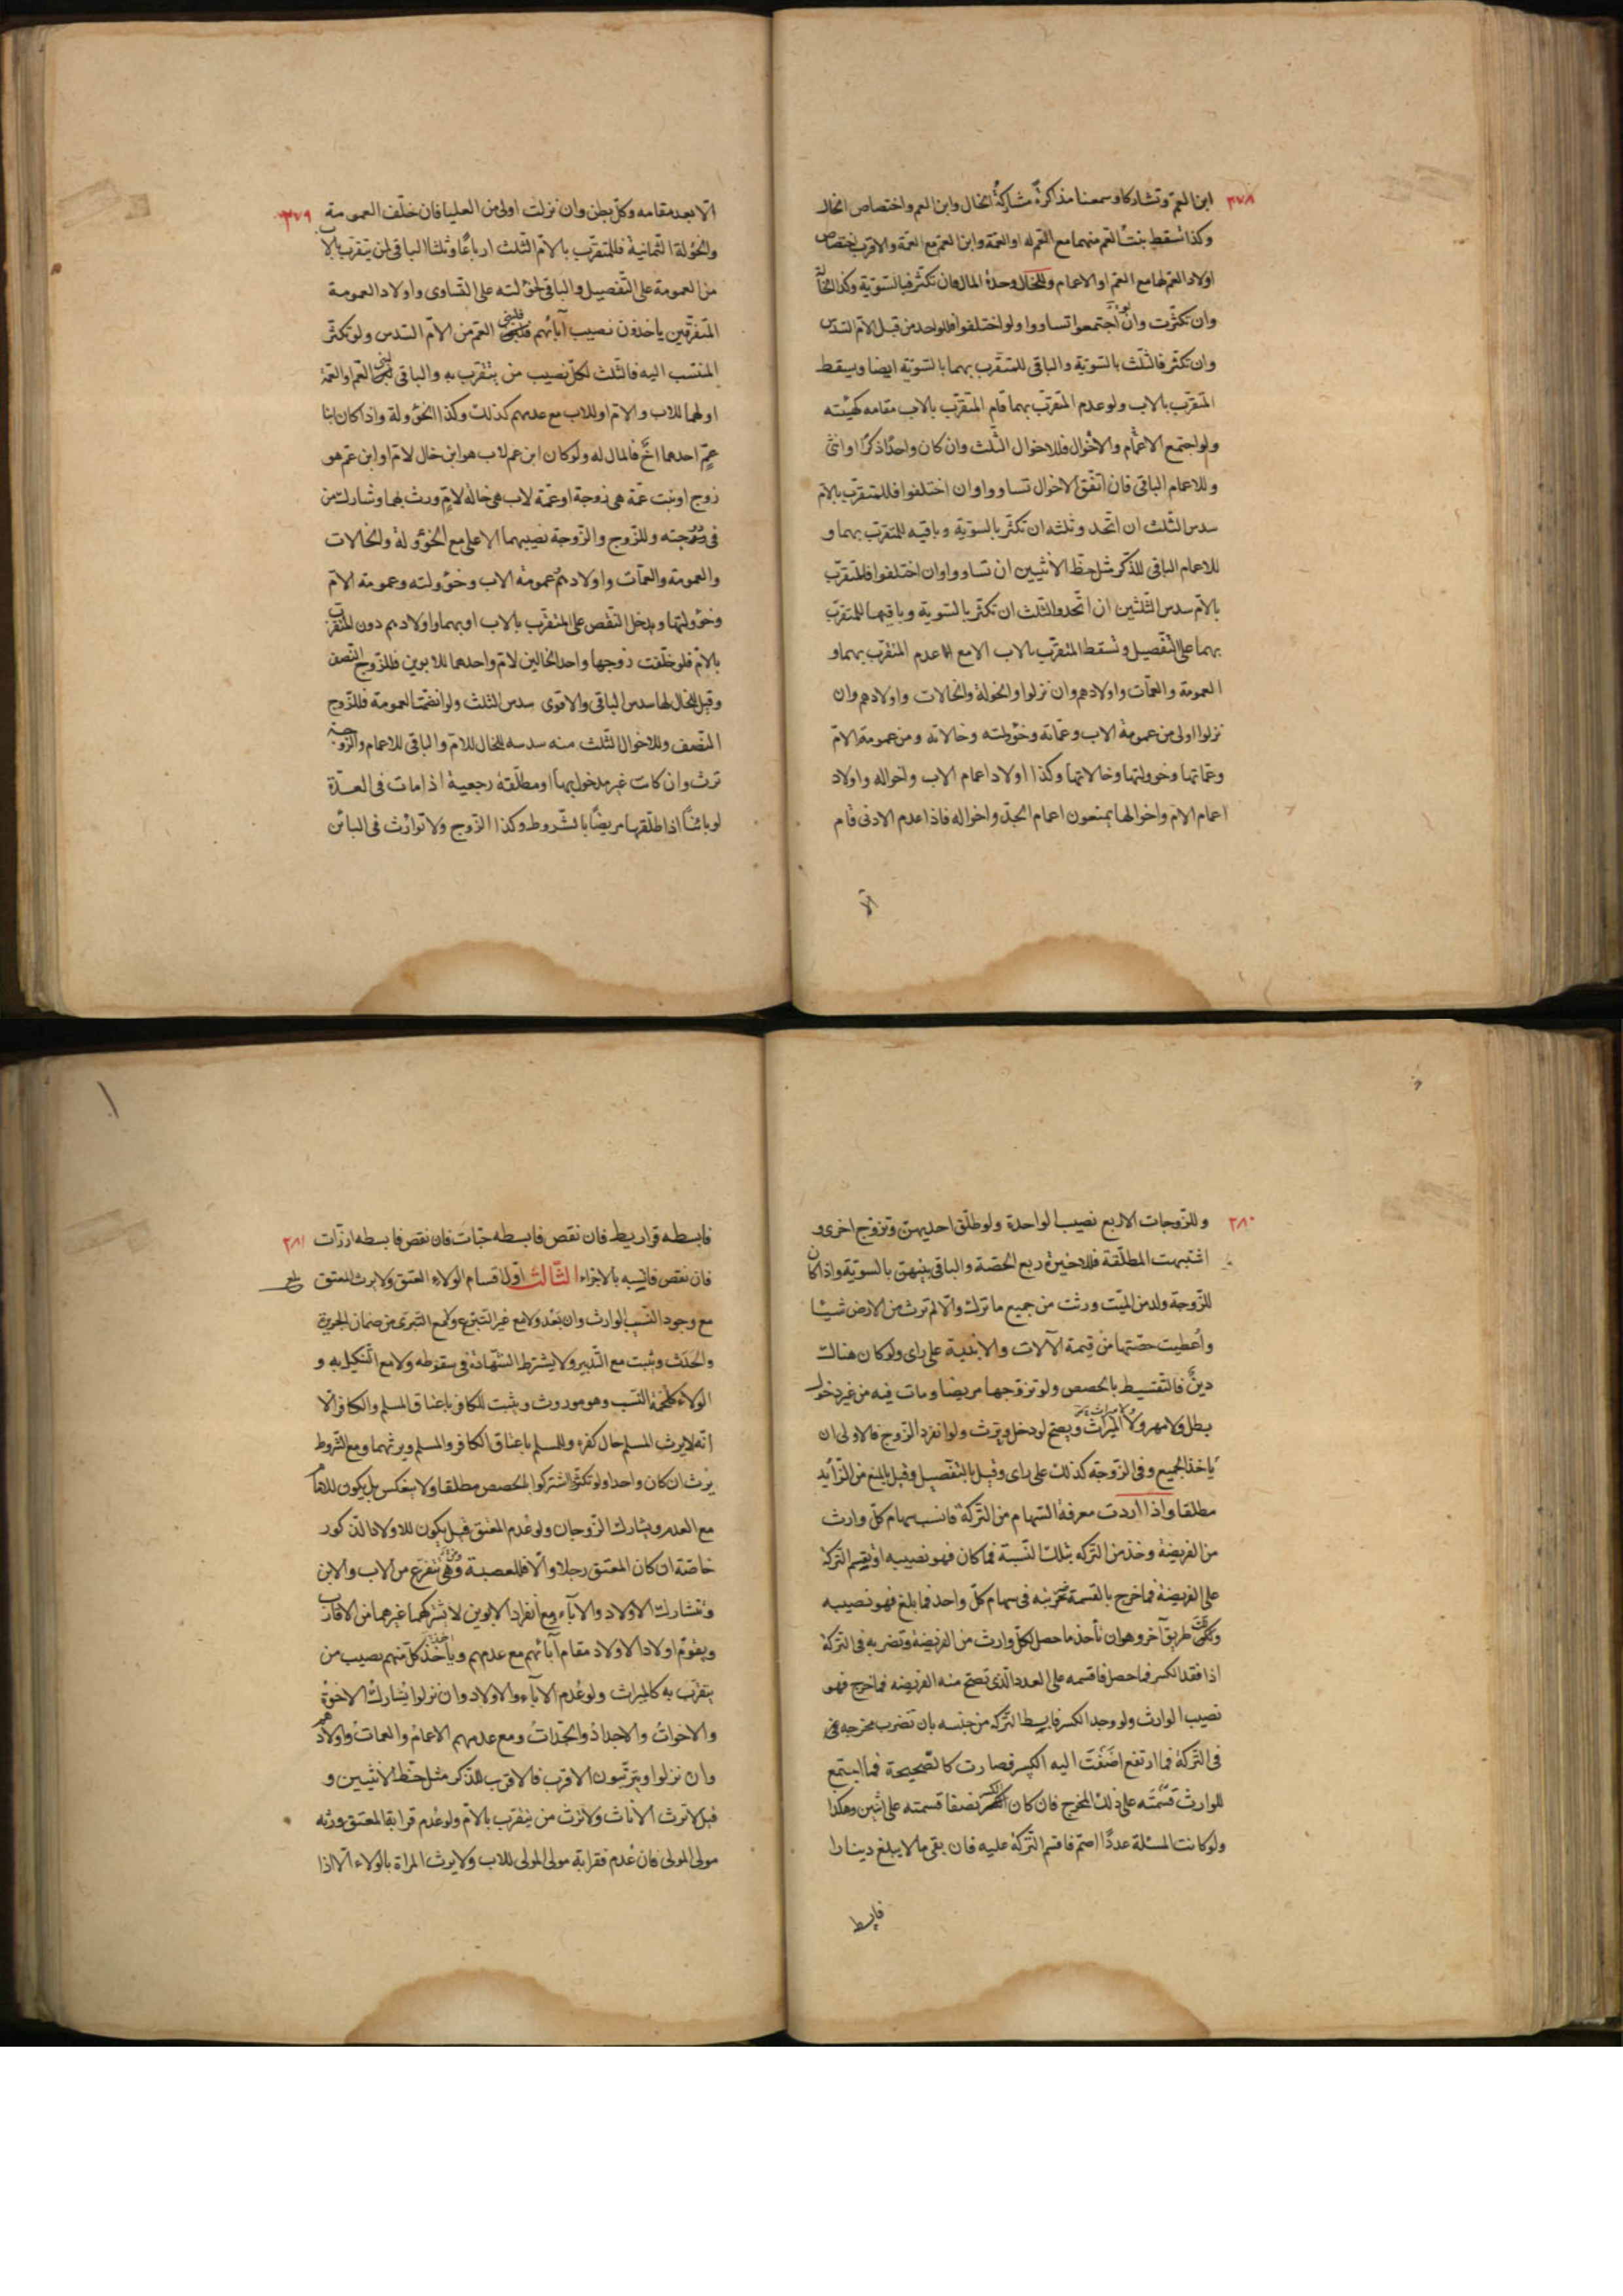 ٣٧٨
ابن العمّ وتشاركا وسمعنا مذاكرة مشاركة الخال وابن العم واختصاص الخال
وكذا تسقط بنت العم منهما مع العم له او العمة وابن العم مع العمة والاقرب اختصاص
اولاد العم لها مع العم او الاعمام وللخال وحده المال فان تكثر فبالتسوّية وكذا الخالة
وان تكثّرت وان اجتمعوا تساووا ولو اختلفوا فللواحد من قبل الام السّدس
وان تكثّر فالثلث بالتسويّة والباقى للمتقرب بهما بالتسويّة ايضا ويسقط
المتقرب بالاب ولو عدم المتقرّب بهما قام المتقرّب بالاب مقامه كهيئته
ولو اجتمع الاعمام والاخوال فللاخوال الثّلث وان كان واحدًا ذكرًا او انثى
وللاعمام الباقى فان اتفق الاخوال تساووا وان اختلفوا فللمتقرّب بالام
سدس الثّلث ان اتّحد وثلثه ان تكثّر بالسويّة وباقيه للمتقرّب بهما و
للاعمام الباقى للذّكر مثل حظّ الانثيين ان تساووا وان اختلفوا فللمتقرّب
بالام سدس الثّلثين ان اتّحد والثلث ان تكثّر بالسّوية وباقيهما للمتقرّب
بهما على التّفصيل وتسقط المتقرّب بالاب الا مع عدم المتقرّب بهما و
العمومة والعمّات واولادهم وان نزلوا والخولة والخالات واولادهم وان
نزلوا اولى من عمومة الاب وعمّاته وخولته وخالاته ومن عمومة الام
وعمّاتها وخولتها وخالاتها وكذا اولاد اعمام الاب واخواله واولاد
اعمام الام واخوالها يمنعون اعمام الجدّ واخواله فاذا عدم الادنى قام
الا
٣٧٩
الابعد مقامه وكلّ بطن وان نزلت اولى من العليا فان خلّف العمومة
والخؤلة الثمانية فللمتقرّب بالامّ الثّلث ارباعًا وثلثا الباقى لمن يتقرب بالاب
من العمومة على التّفصيل والباقى لخؤلته على التّساوى واولاد العمومة
المتفرّقين ياخذون نصيب آبائهم فلبنى العمّ من الامّ السّدس ولو تكثّر
المنتسب اليه فالثّلث لكلّ نصيب من يتقرب به والباقى لبنى العّم او العمّة
او لهما للاب والامّ او للاب مع عدمهم كذلك وكذا الخؤولة واذا كان ابنا
عمّ احدهما اخ فالمال له ولو كان ابن عم لاب هو ابن خال لامّ او ابن عم هو
زوج او بنت عمّة هى زوجة او عمّة لاب هى خالة لامّ ورث بهما وشارك من
فى درجته وللزّوج والزّوجة نصيبهما الاعلى مع الخؤولة والخالات
والعمومة والعمّات واولادهم عمومة الاب وخؤولته وعمومة الامّ
وخؤولتها ويدخل النقص على المتقرّب بالاب او بهما واولادهم دون المتقرّب
بالامّ فلو خلّفت زوجها واحد الخالين لامّ واحدهما للابوين فللزّوج النّصف
وقيل للخال لها سدس الباقى والاقوى سدس الثلث ولو انضمّت العمومة فللزّوج
النّصف وللاخوال الثّلث منه سدسه للخال للامّ والباقى للاعمام والزّوجة
ترث وان كانت غير مدخول بها او مطلّقة رجعية اذا مات فى العدّة
او بائنًا اذا طلّقها مريضًا بالشّروط وكذا الزّوج ولا توارث فى البائن
٢٨٠
وللزّوجات الاربع نصيب الواحدة ولو طلّق احديهنّ وتزوّج اخرى و
اشتبهت المطلّقة فللاخيرة ربع الحصّة والباقى بينهنّ بالسويّة واذا كان
للزّوجة ولد من الميّت ورثت من جميع ما ترك والّا لم ترث من الارض شيئا
وأُعطيت حصّتها من قيمة الآلات والابنية على راى ولو كان هناك
دينٌ فالتّقسيط بالحصص ولو تزوّجها مريضا ومات فيه من غير دخول
بطل ولا مهر ولا ميراث ويصحّ لو دخل ويرث ولو انفرد الزّوج فالاولى ان
ياخذ الجميع وفى الزّوجة كذلك على راى وقيل بالتّفصيل وقيل بالمنع من الزّائد
مطلقا واذا اردت معرفة السّهام من التّركة فانسب سهام كلّ وارث
من الفريضة وخذ من التّركه بتلك النّسبة فما كان فهو نصيبه او تقسم التّركة
على الفريضة فما خرج بالقسمة تضربه فى سهام كلّ واحد فما بلغ فهو نصيبه
طريق آخر وهو ان تأخذ ما حصل لكلّ وارث من الفريضة وتضربه فى التّركة
اذا فقد الكسر فما حصل فاقسمه على العدد الّذى تصحّ منه الفريضه فما خرج فهو
نصيب الوارث ولو وجد الكسر فابسط التّركه من جنسه بان تضرب مخرجه فى
فى التّركة فما ارتفع اضَفْتَ اليه الكسر فصارت كالصّحيحة فما اجتمع
للوارث قسّمتَه على ذلك المخرج فان كان الكسر نصفا قسمته على اثنين وهكذا
ولو كانت المسئلة عددًا اصمّ فاقسم التّركة عليه فان بقى ما لا يبلغ دينارا
فابسط
٢٨١
فابسطه قراريط فان نقص فابسطه حبّات فان نقص فابسطه ارزّات
فان نقص فانسبه بالاجزاء الثّالث الولاء اقسام اول العتق ولا يرث المعتق
مع وجود النّسب الوارث وان بَعُد ولا مع غير التبرّع ولا مع التبرّى من ضمان الجريرة
والحَدَث ويثبت مع التّدبير ولا يشترط الشّهادة فى سقوطه ولا مع التّنكيل به و
الولاء كلحمة النّسب وهو موروث ويثبت للكافر باعتاق المسلم والكافر الّا
انّه لا يرث المسلم حال كفره وللمسلم باعتاق الكافر والمسلم ويرثهما ومع الشّروط
يرث ان كان واحدا ولو تكثّر اشتركوا بالحصص مطلقا ولا ينعكس بل يكون للامام
مع العدم ويشارك الزّوجان ولو عُدم المعتق قيل يكون للاولاد الذّكور
خاصّة ان كان المعتق رجلا والّا فللعصبة وقيل من الاب والابن
وتتشارك الاولاد والآباء ومع انفراد الابوين لا يشركهما غيرهما من الاقارب
ويقوم اولاد الاولاد مقام آبائهم مع عدمهم ويأخذ كلّ منهم نصيب من
يتقرّب به كالميراث ولو عُدم الآباء والاولاد وان نزلوا يشارك الاخوة
والاخواتُ والاجدادُ والجدّاتُ ومع عدمهم الاعمامُ والعماتُ واولادهم
وان نزلوا ويترتّبون الاقرب فالاقرب للذّكر مثل حظّ الانثيين و
قيل لا ترث الاناث ولا يرث من يتقرّب بالامّ ولو عُدم قرابة المعتق ورثه
مولى المولى فان عُدم فقرابة مولى المولى للاب ولا يرث المراة بالولاء الّا اذا